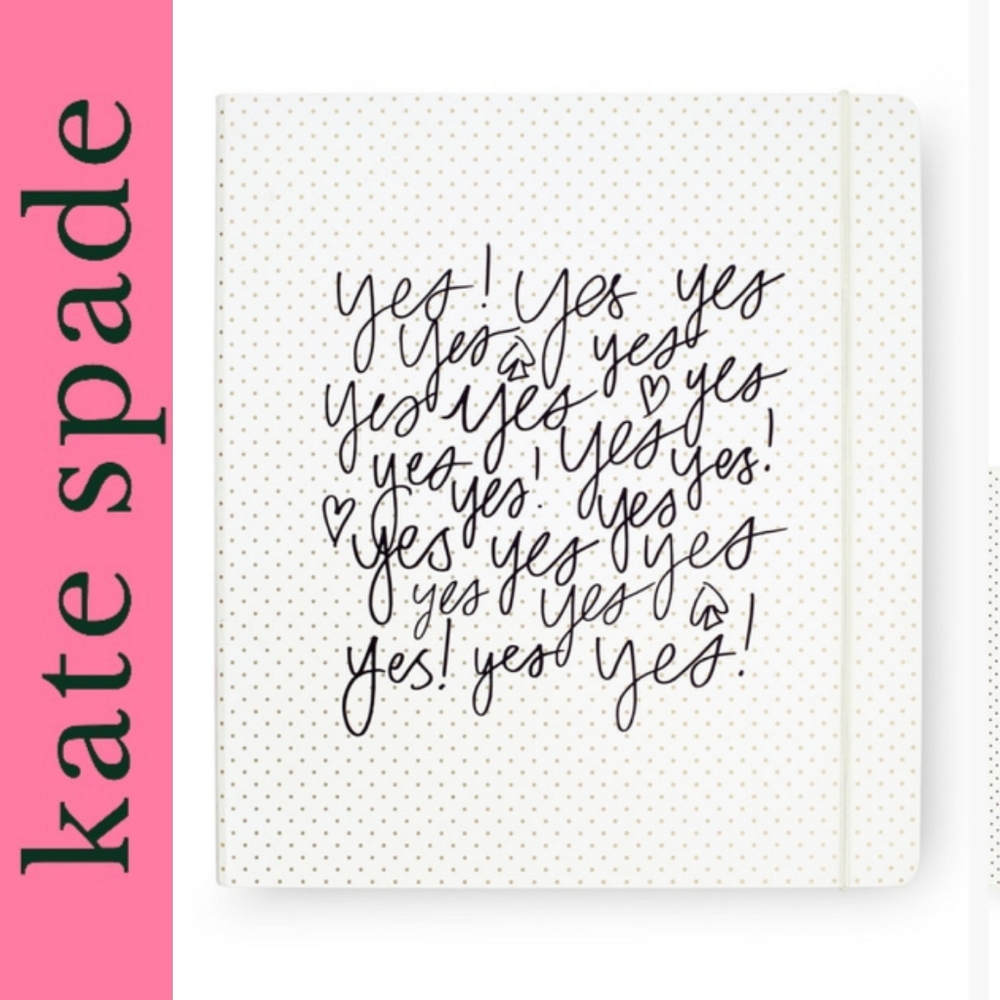 kate spade
yes! yes yes
yes yes
yes yes yes
yes yes yes!
yes! yes
yes yes yes
yes yes
yes! yes yes!